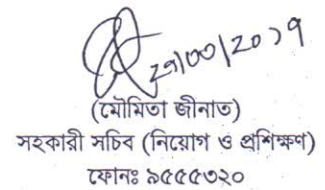 ২৯/০০/২০১৭
(মৌমিতা জীনাত)
সহকারী সচিব (নিয়োগ ও প্রশিক্ষণ)
ফোনঃ ৯৫৫৫৩২০